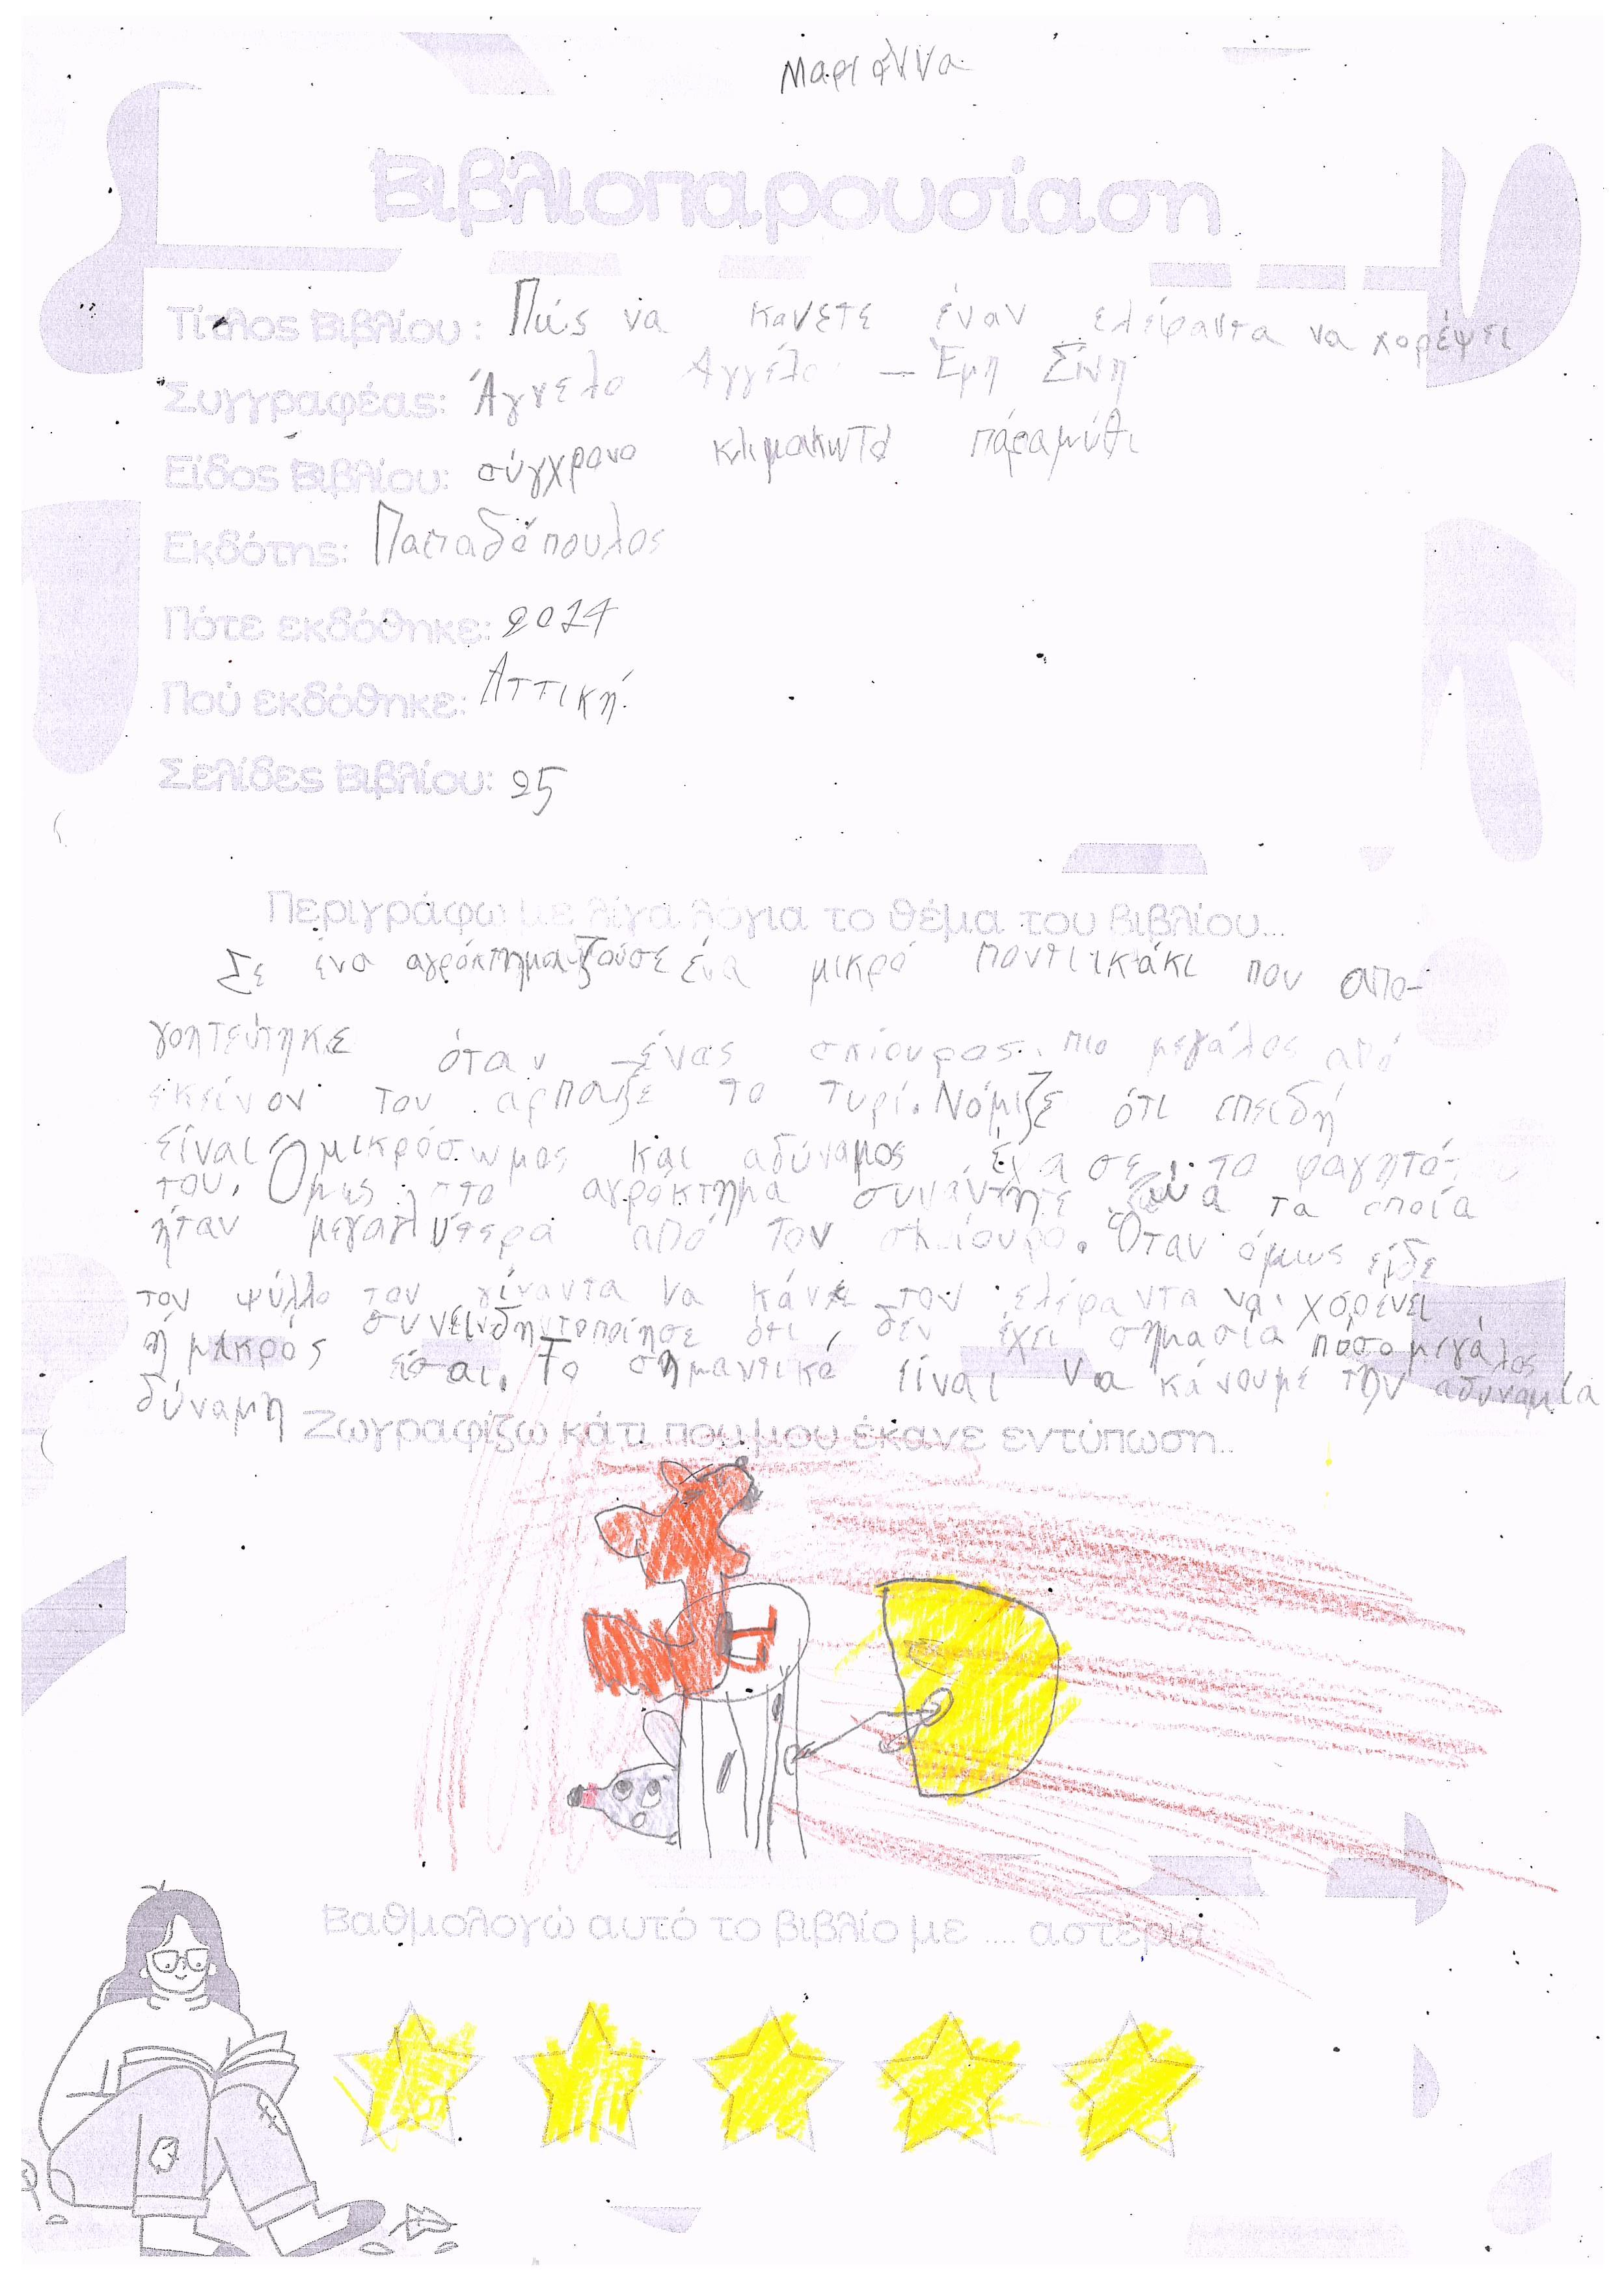 Μαριάννα
Βιβλιοπαρουσίαση
Τίτλος Βιβλίου: Πώς να κανετε έναν ελέφαντα να χορέψει
Συγγραφέας: Άγγελο Αγγέλο - Έμη Σίνη
Είδος Βιβλίου: σύγχρονο κλιμακωτό παραμύθι
Εκδότης: Παπαδόπουλος
Πότε εκδόθηκε: 2014
Πού εκδόθηκε: Αττική
Σελίδες Βιβλίου: 25
Περιγράφω με λίγα λόγια το θέμα του βιβλίου...
Σε ένα αγρόκτημα ζούσε ένα μικρό ποντικάκι που απο-
γοητεύτηκε όταν ένας σκίουρος πιο μεγάλος από
εκείνον του αρπαξε το τυρί. Νόμιζε ότι επειδή
είναι μικρόσωμος και αδύναμος έχασε το φαγητό
του. Όμως στο αγρόκτημα συνάντησε ζώα τα οποία
ήταν μεγαλύτερα από τον σκίουρο. Όταν όμως είδε
τον ψύλλο τον γίγαντα να κάνει τον ελέφαντα να χορεύει
συνειδητοποίησε ότι, δεν έχει σημασία πόσο μεγάλος
ή μικρός είσαι. Το σημαντικό είναι να κάνουμε την αδυναμία
δύναμη
Ζωγραφίζω κάτι που μου έκανε εντύπωση..
Βαθμολογώ αυτό το βιβλίο με .... αστέρια